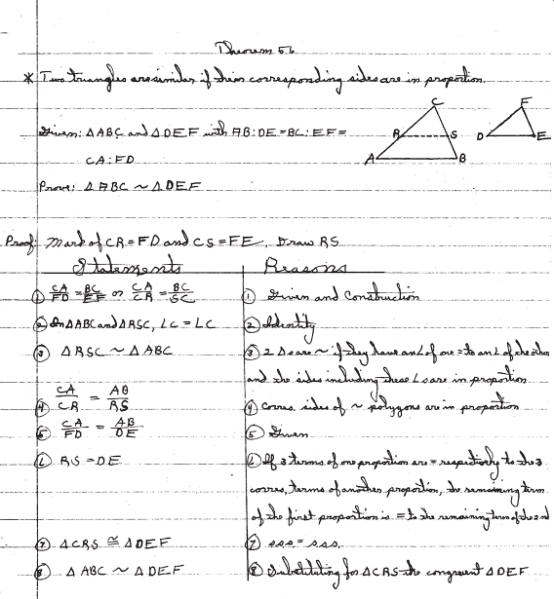 Theorem 56
* Two triangles are similar if their corresponding sides are in proportion.
Given: △ABC and △DEF with AB:DE = BC:EF =
CA:FD
Prove: △ABC ~ △DEF
C
F
R
S
D
E
A
B
Proof: Mark off CR = FD and CS = FE. Draw RS
Statements
Reasons
① CA/FD = BC/EF or CA/CR = BC/SC
① Given and Construction
② In △ABC and △RSC, ∠C = ∠C
② Identity
③ △RSC ~ △ABC
③ 2 △s are ~ if they have an ∠ of one = to an ∠ of the other
and the sides including these ∠s are in proportion
④ CA/CR = AB/RS
④ Corres. sides of ~ polygons are in proportion
⑤ CA/FD = AB/DE
⑤ Given
⑥ RS = DE
⑥ If 3 terms of one proportion are = respectively to the 3
corres. terms of another proportion, the remaining term
of the first proportion is = to the remaining term of the 2nd
⑦ △CRS ≅ △DEF
⑦ s.s.s. = s.s.s.
⑧ △ABC ~ △DEF
⑧ Substituting for △CRS the congruent △DEF